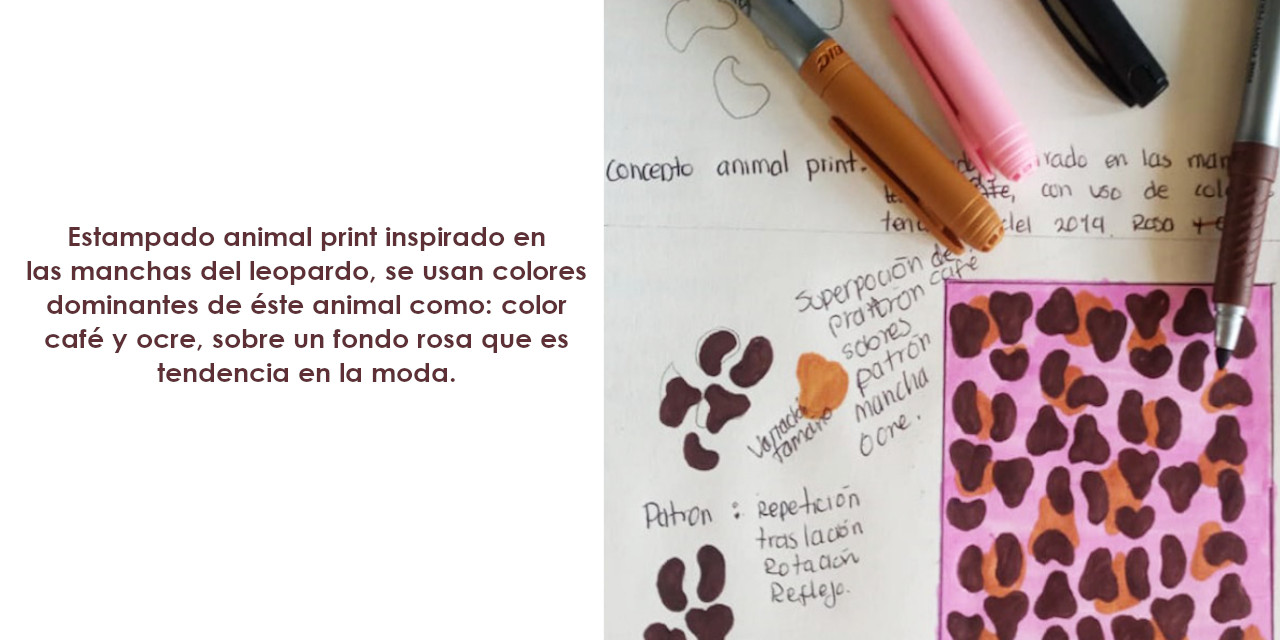 Estampado animal print inspirado en
las manchas del leopardo, se usan colores
dominantes de éste animal como: color
café y ocre, sobre un fondo rosa que es
tendencia en la moda.
BIC
concepto animal print.
en las
con uso de
del 2019 Rosa
Superpocion de
prattron café
sobres
patrón
mancha
ocre.
Variación
tamaño
Patron : Repetición
traslación
Rotación
Reflejo.